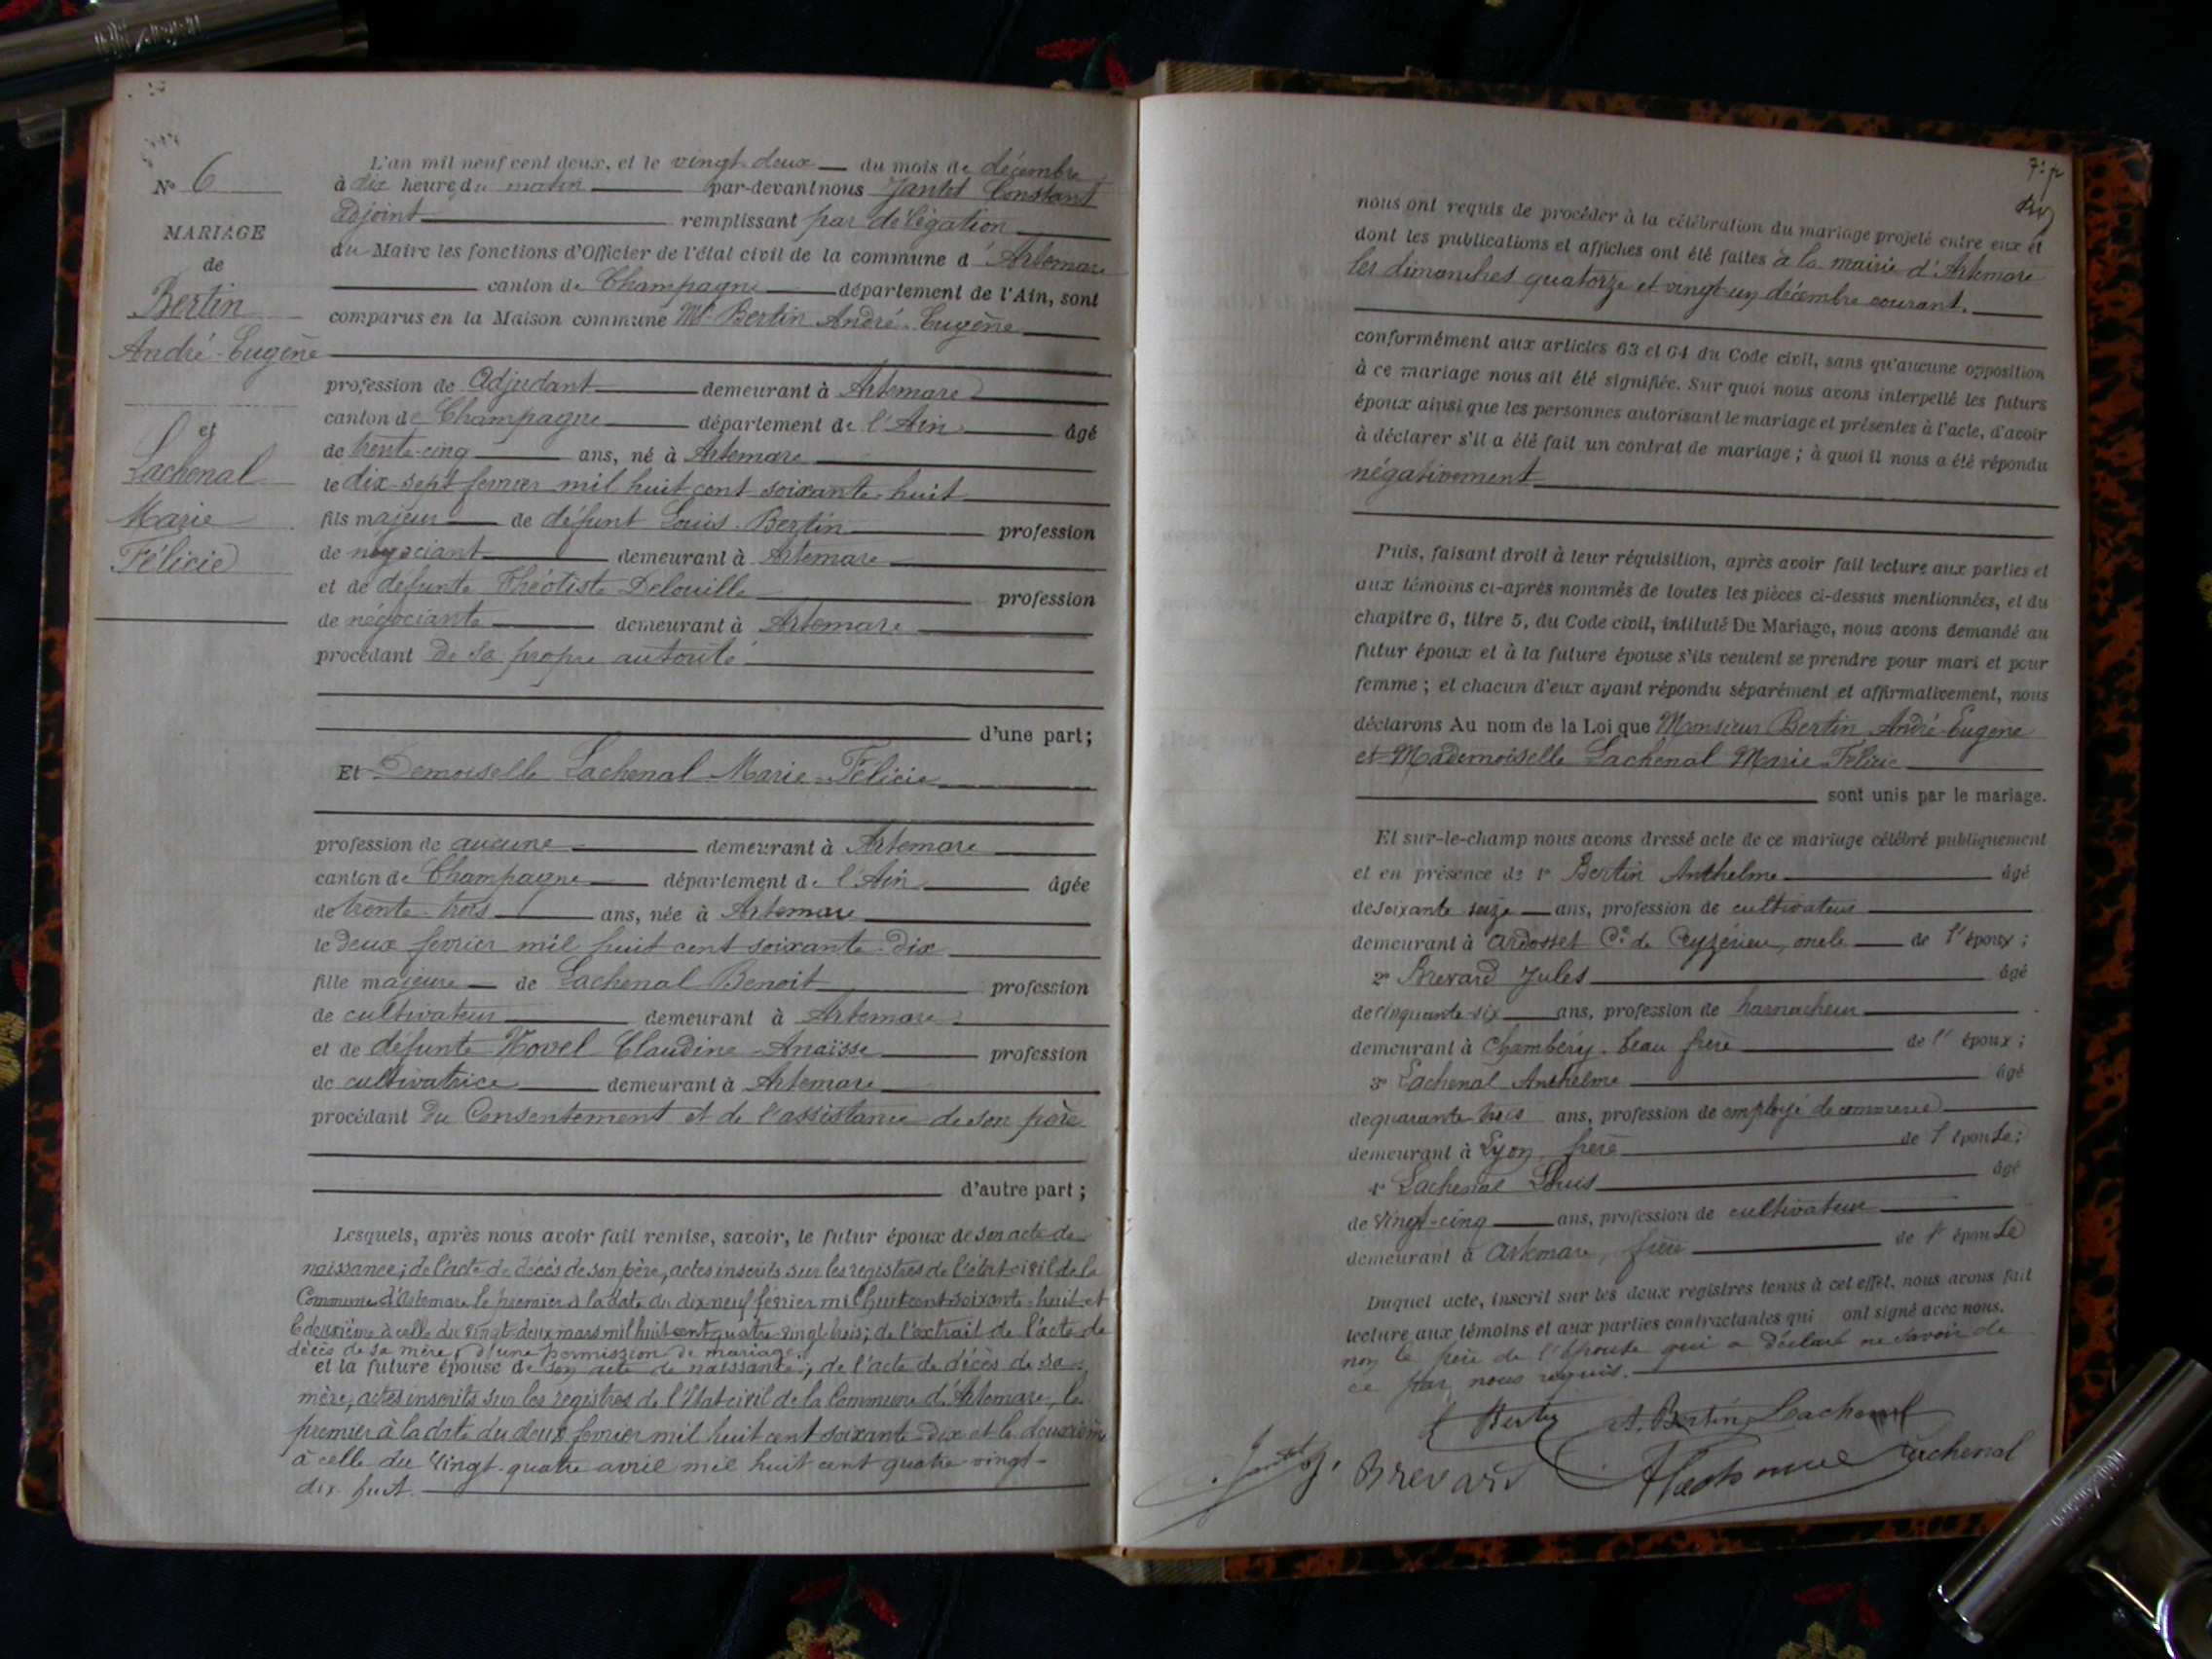 N° 6
MARIAGE
de
Bertin
André-Eugène
et
Lachenal
Marie
Félicie
L'an mil neuf cent deux, et le vingt-deux du mois de décembre
à dix heures du matin par-devant nous Jantet Constant
adjoint remplissant par délégation
du Maire les fonctions d'Officier de l'état civil de la commune d'Artemare
canton de Champagne département de l'Ain, sont
comparus en la Maison commune Mr Bertin André-Eugène
profession de Adjudant demeurant à Artemare
canton de Champagne département de l'Ain âgé
de trente-cinq ans, né à Artemare
le dix-sept fevrier mil huit cent soixante-huit
fils majeur de défunt Louis Bertin profession
de négociant demeurant à Artemare
et de défunte Théotiste Delouille profession
de négociante demeurant à Artemare
procédant de sa propre autorité
d'une part;
Et Demoiselle Lachenal Marie-Félicie
profession de aucune demeurant à Artemare
canton de Champagne département de l'Ain âgée
de trente-trois ans, née à Artemare
le deux fevrier mil huit cent soixante-dix
fille majeure de Lachenal Benoit profession
de cultivateur demeurant à Artemare
et de défunte Hovel Claudine-Anaïsse profession
de cultivatrice demeurant à Artemare
procédant du Consentement et de l'assistance de son père
d'autre part;
Lesquels, après nous avoir fait remise, savoir, le futur époux de son acte de
naissance; de l'acte de décès de son père, actes inscrits sur les registres de l'état-civil de la
Commune d'Artemare le premier à la date du dix neuf février mil huit cent soixante-huit et
le deuxième à celle du vingt-deux mars mil huit cent quatre-vingt-trois; de l'extrait de l'acte de
décès de sa mère, d'une permission de mariage.
et la future épouse de son acte de naissance; de l'acte de décès de sa
mère, actes inscrits sur les registres de l'Etat-civil de la Commune d'Artemare, le
premier à la date du deux fevrier mil huit cent soixante-dix et le deuxième
à celle du vingt-quatre avril mil huit cent quatre-vingt-
dix-huit.
nous ont requis de procéder à la célébration du mariage projeté entre eux et
dont les publications et affiches ont été faites à la mairie d'Artemare
les dimanches quatorze et vingt-un décembre courant.
conformément aux articles 63 et 64 du Code civil, sans qu'aucune opposition
à ce mariage nous ait été signifiée. Sur quoi nous avons interpellé les futurs
époux ainsi que les personnes autorisant le mariage et présentes à l'acte, d'avoir
à déclarer s'il a été fait un contrat de mariage; à quoi il nous a été répondu
négativement
Puis, faisant droit à leur réquisition, après avoir fait lecture aux parties et
aux témoins ci-après nommés de toutes les pièces ci-dessus mentionnées, et du
chapitre 6, titre 5, du Code civil, intitulé Du Mariage, nous avons demandé au
futur époux et à la future épouse s'ils veulent se prendre pour mari et pour
femme; et chacun d'eux ayant répondu séparément et affirmativement, nous
déclarons Au nom de la Loi que Monsieur Bertin André-Eugène
et Mademoiselle Lachenal Marie-Félicie
sont unis par le mariage.
Et sur-le-champ nous avons dressé acte de ce mariage célébré publiquement
et en présence de 1° Bertin Anthelme âgé
de soixante seize ans, profession de cultivateur
demeurant à Ardosset Cne de Ceyzérieu, oncle de l'époux;
2° Brevard Jules âgé
de cinquante-six ans, profession de harnacheur
demeurant à Chambéry, beau frère de l'époux;
3° Lachenal Anthelme âgé
de quarante trois ans, profession de employé de commerce
demeurant à Lyon, frère de l'épouse;
4° Lachenal Louis âgé
de vingt-cinq ans, profession de cultivateur
demeurant à Artemare, frère de l'épouse
Duquel acte, inscrit sur les deux registres tenus à cet effet, nous avons fait
lecture aux témoins et aux parties contractantes qui ont signé avec nous.
non le père de l'épouse qui a déclaré ne savoir de
ce par nous requis.
Bertin A. Bertin Lachenal
Brevard Lachenal